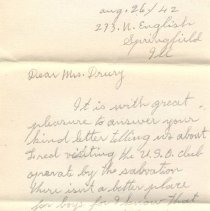 Aug. 26/42
273. N. English
Springfield
Ill
Dear Mrs. Drury
It is with great
pleasure to answer your
kind letter telling us about
Fred visiting the U.S.O. club
operat by the salvation
There isn't a better place
for boys for I know that